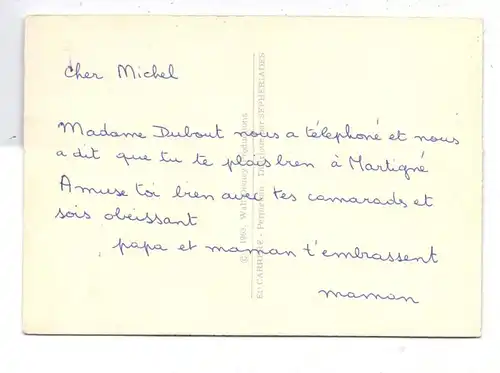 cher Michel
Madame Dubout nous a téléphoné et nous
a dit que tu te plais bien à Martigné
Amuse toi bien avec tes camarads et
sois obeissant
papa et maman t'embrassent
maman
© 1963, Walt Disney Productions